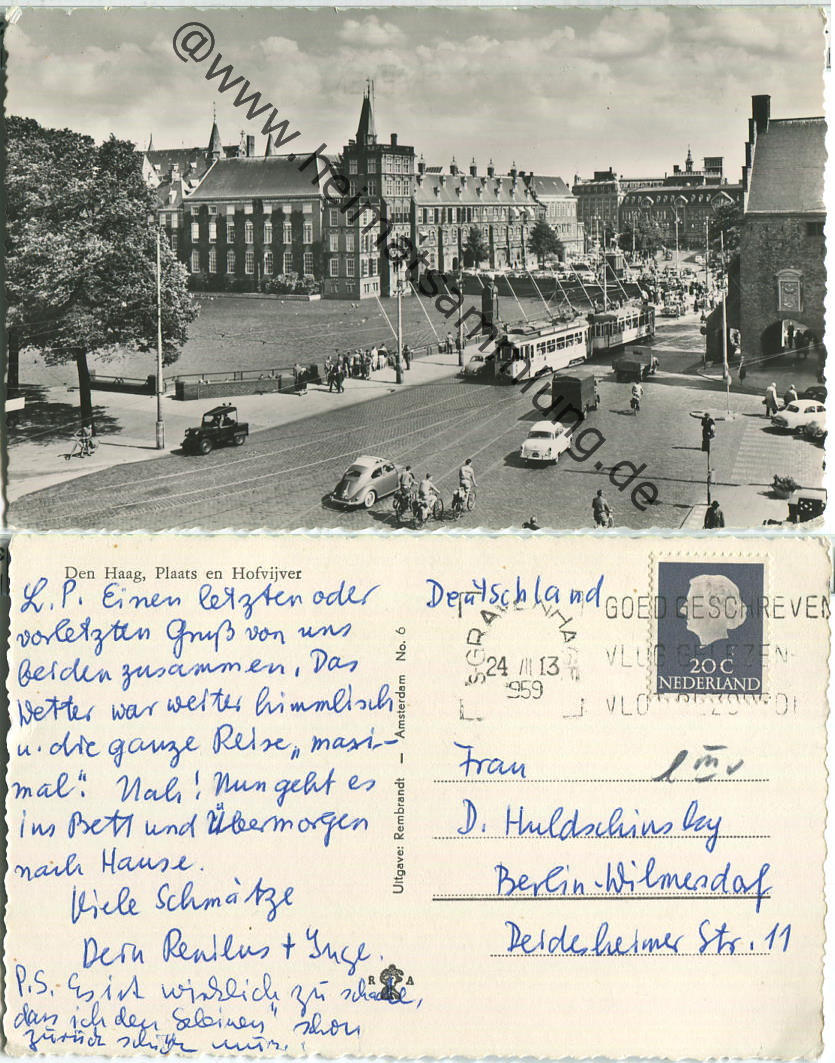 @www.heimatsammlung.de
Den Haag, Plaats en Hofvijver
L. P. Einen letzten oder
vorletzten Gruß von uns
beiden zusammen. Das
Wetter war weiter himmlisch
u. die ganze Reise „maxi-
mal". Nah! Nun geht es
ins Bett und Übermorgen
nach Hause.
Viele Schmätze
Dein + Inge.
P.S. Es ist wirklich zu schade,
dass ich den " schon
zurück muß.
Uitgave: Rembrandt — Amsterdam No. 6
R A
Deutschland
'SGRAVENHAGE
24 III 13
959
GOED GESCHREVEN
VLUG GELEZEN-
VLUG BEZORGD!
20 C
NEDERLAND
Frau
D. Huldschinsky
Berlin-Wilmersdorf
Deidesheimer Str. 11